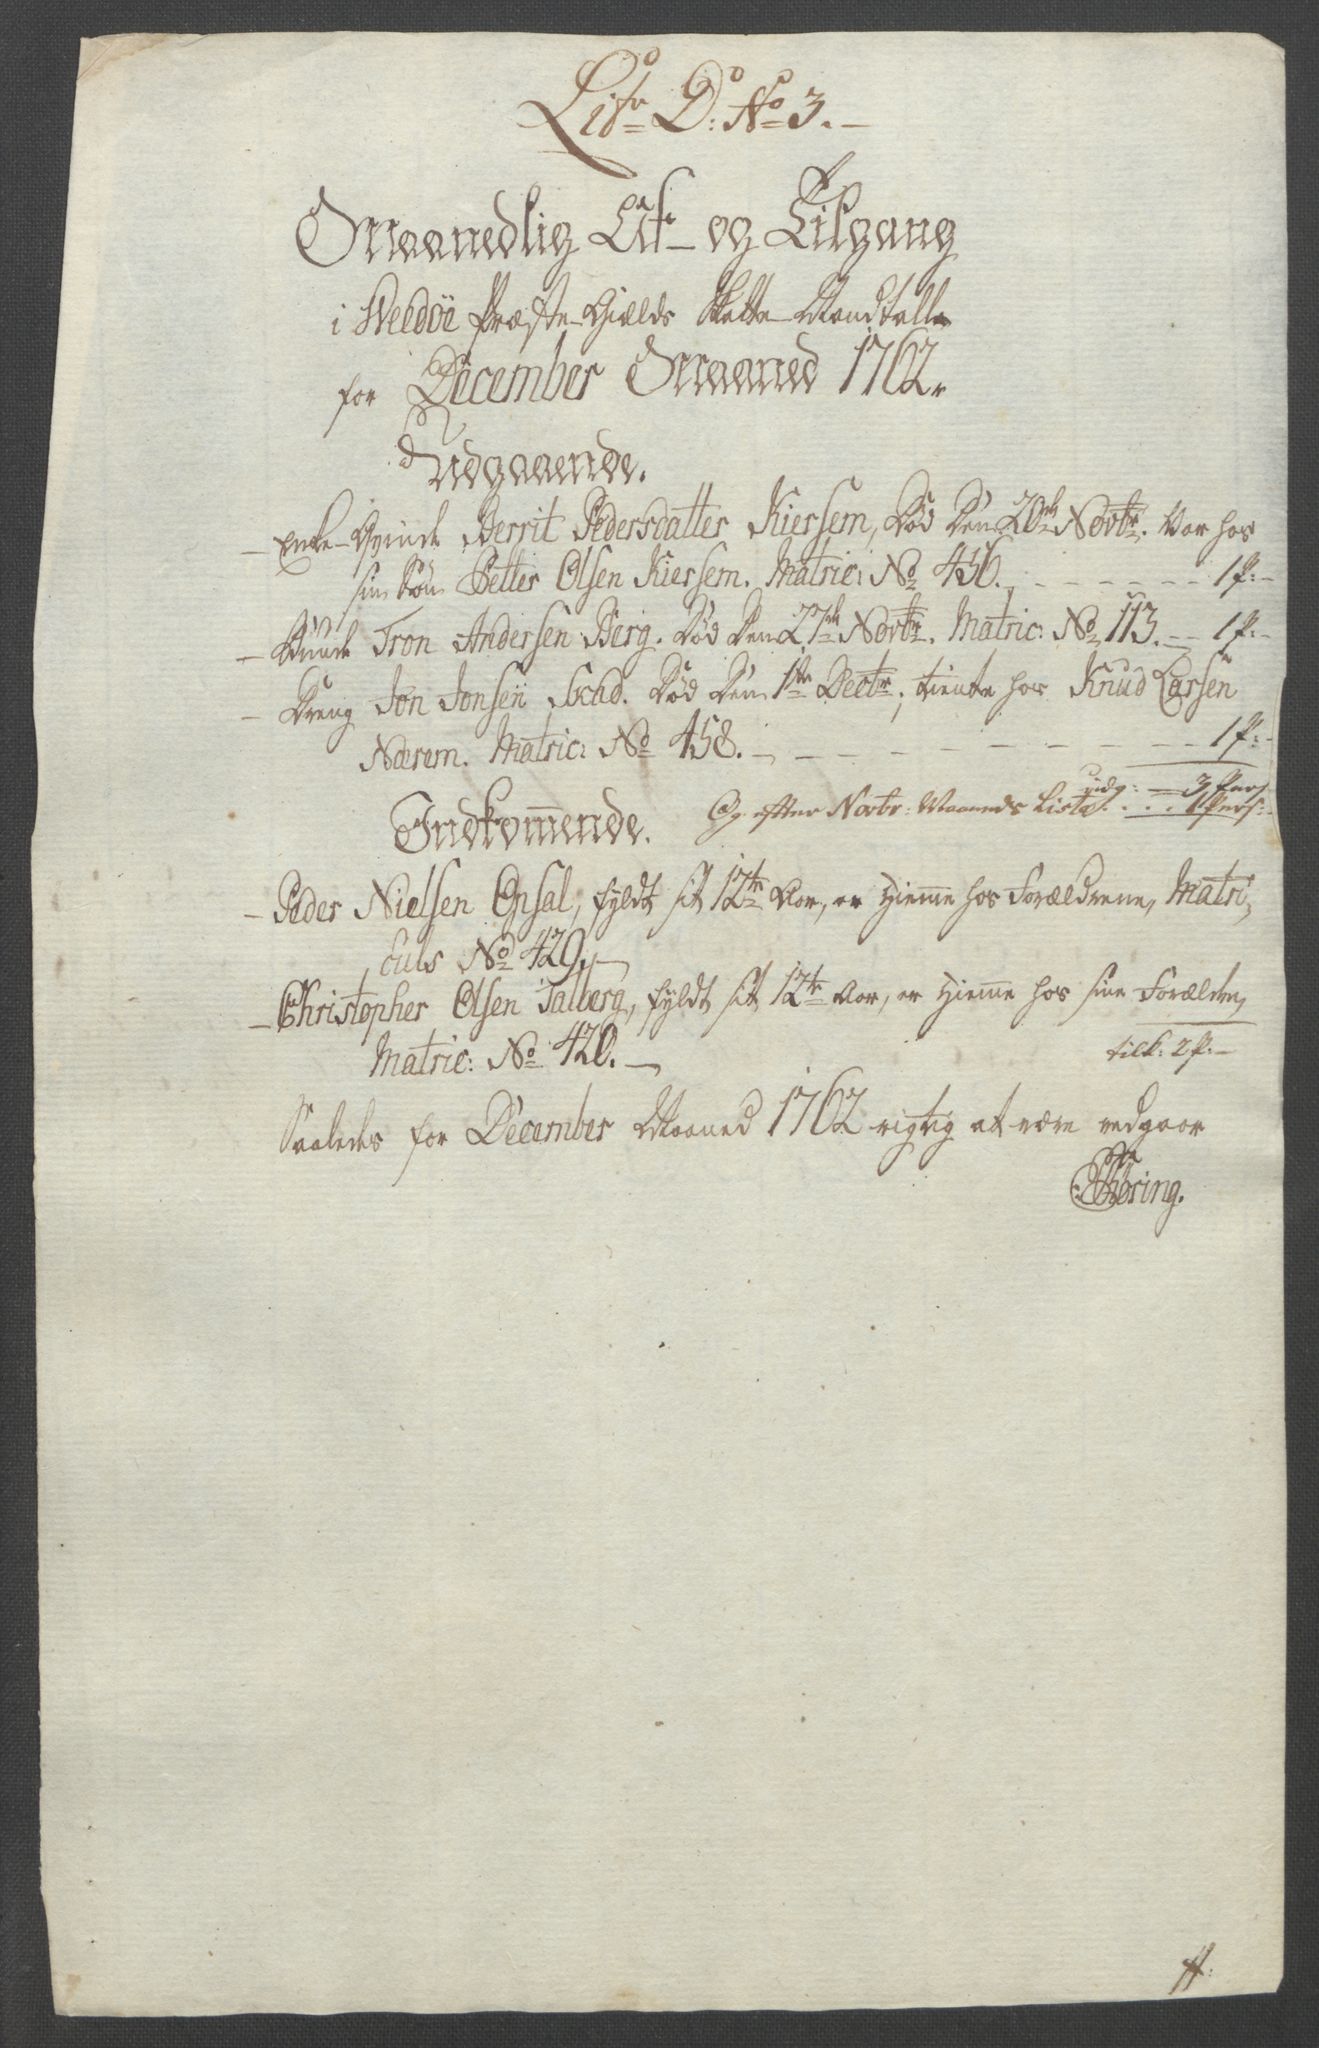 Litr D: No 3.
Maanedlig Af- og Tilgang
i Weedöe Præste-Gields Skatte-Mandtall
for December Maaned 1762.
Udgaaende.
- Enke-Qvinde Berrit Pedersdatter Kiersem, Död Den 20de Novbr. var hos
sin Sön Petter Olsen Kiersem. Matric: No 456. - - - - - - 1 P: -
- Bunde Tron Andersen Berg. Död Den 27de Novbr. Matric: No 113. - 1 P: -
- Dreng Jon Jonsen Sechd. Död Den 1te Decbr; tiente hos Knud Larsen
Nærem. Matric: No 458. - - - - - - - - - 1 P: -
udg: 3 Pers
Og efter Novbr: Maaneds Liste . . . 1 Pers:
Indkommende.
- Peder Nielsen Opsal, fyldt sit 12te Aar, er Hieme hos Forældrene, Matri,
culs No 429. -
- Christopher Olsen Talberg, fyldt sit 12te Aar, er Hieme hos sine Forældre,
Matric: No 420. -
tilk: 2 P: -
Saaledes for December Maaned 1762 rigtig at være vedgaar
Thöring.